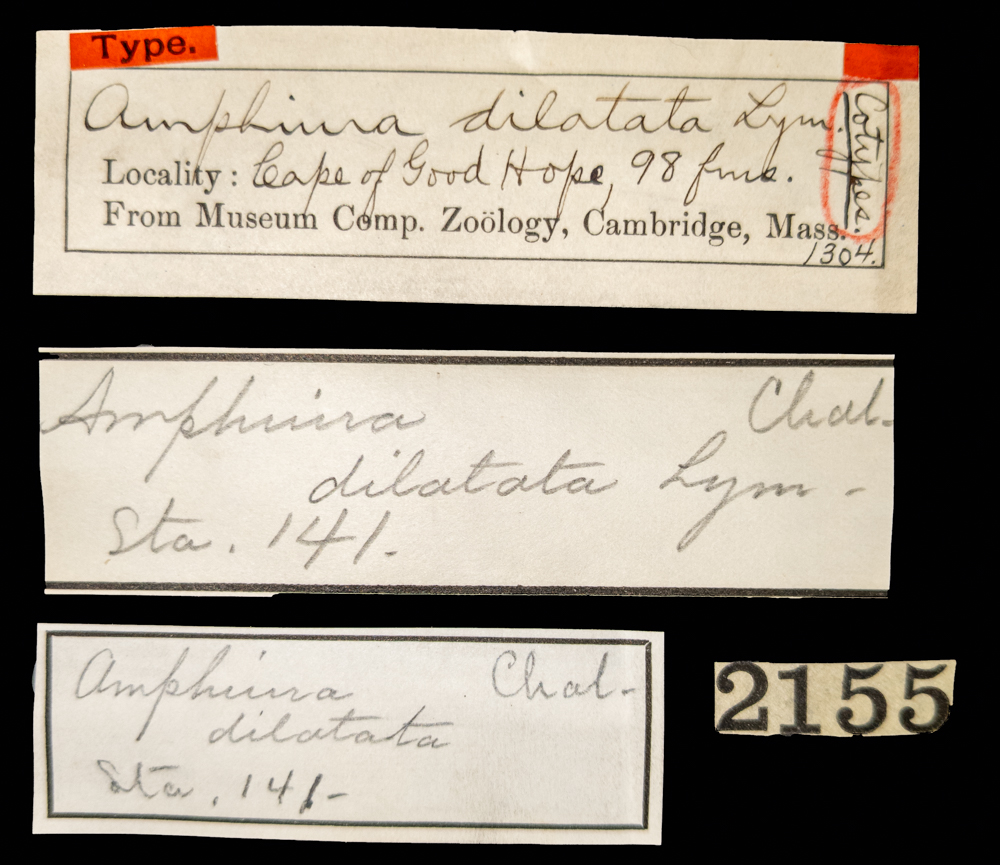 Type.
Amphiura dilatata Lym.
Cotypes.
Locality: Cape of Good Hope, 98 fms.
From Museum Comp. Zoölogy, Cambridge, Mass.
1304.
Amphiura Chal-
dilatata Lym-
Sta. 141-
Amphiura Chal-
dilatata
Sta. 141-
2155